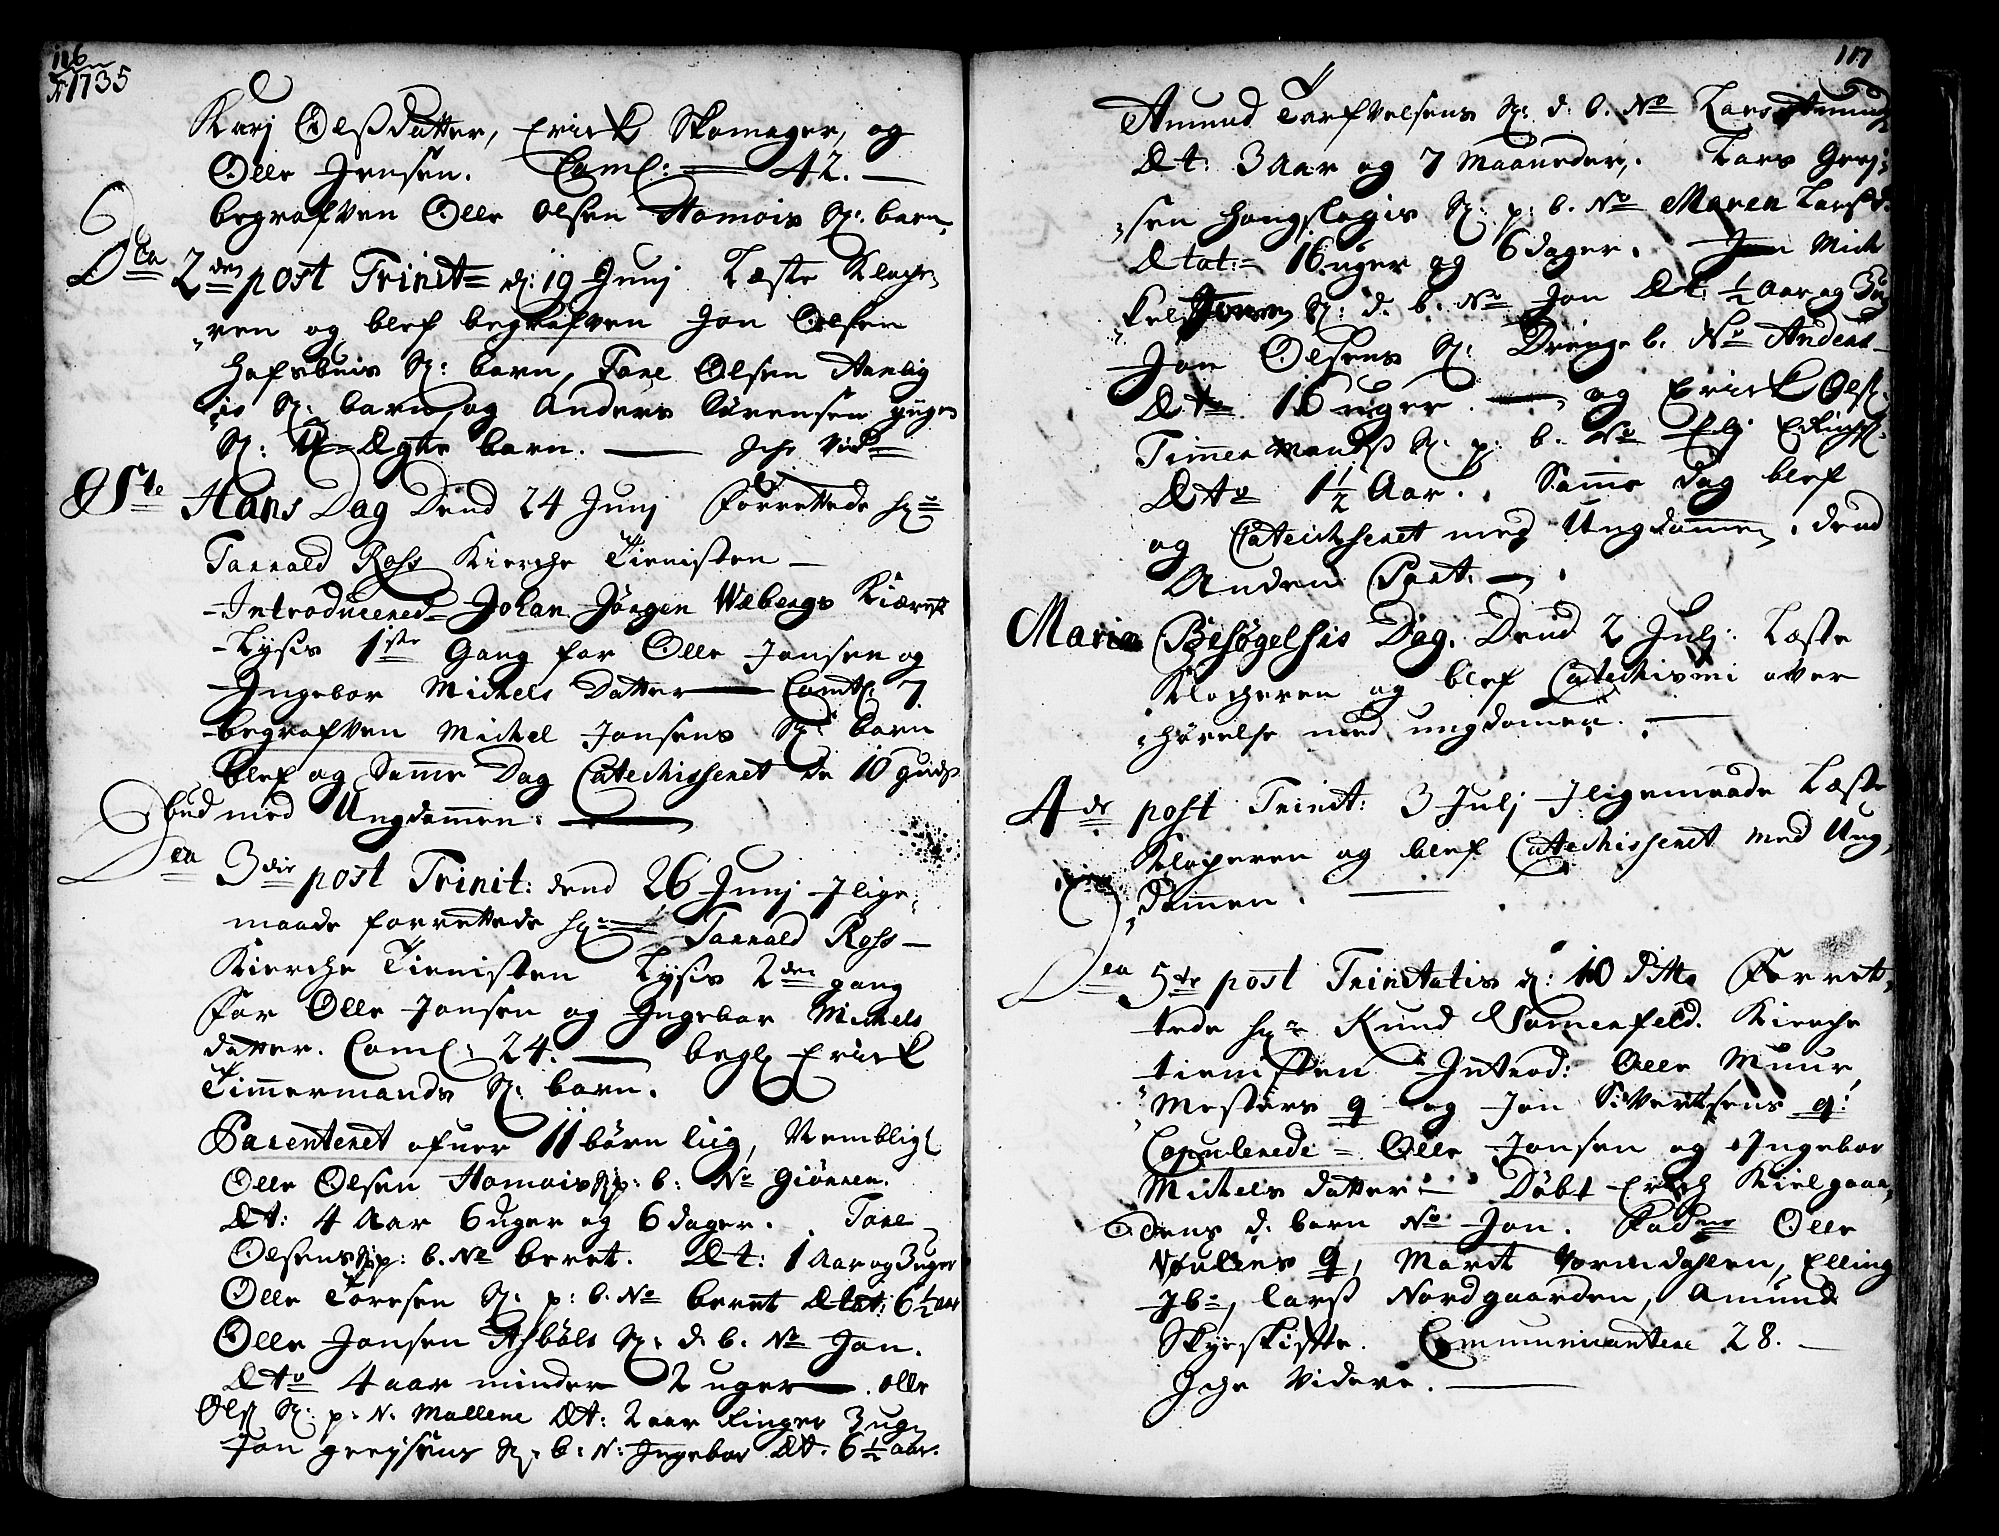 116
Ao 1735
Karj Olsdatter, Erick Skomager, og
Olle Jensen. Coml: 42. —
begrafven Olle Olsen Homois S: barn,
Dca 2den post Trinit= d: 19 Junj Læste Kloche,
„ren og blef begrafven Jon Olsen
Hafsbuis S: barn, Tore Olsen
S: barn, og Anders Sørensen
S: U-Ægte barn. — Iche Vid=
St Hans Dag Dend 24 Junj forrettede Hr
Tarrald Ross Kierche Tienisten —
-Introduceret= Johan Jørgen Wæbergs Kiæreste
-Lysis 1ste Gang for Olle Jonsen og
Ingebor Michels Datter — Comt: 7
begrafven Michel Jonsens S: barn
blef og Samme Dag Catechisseret de 10 Guds
bud med Ungdommen. —
Dca 3die post Trinit: dend 26 Junj Ilige,
maade forrettede Hr= Tarrald Ross —
Kierche Tienisten Lysis 2den gang
for Olle Jonsen og Ingebor Michels
datter. Coml: 24. — begr Erick
Timmermands S: barn.
Parenteret ofuer 11 børn liig, Nemblig
Olle Olsen Homois S: p: b: No Giøren.
Æt: 4 Aar 6 uger og 6 dager. Tore
Olsens S: p: b. No beret. Æt: 1 Aar og 3 uger
Olle Toresen S: p: b. No beret Ætat: 6½ aar
Olle Jonsen Asbøls S: d. b. No Jon.
Æto 4 aar minder 2 uger —. Olle
Ols: S: p: N. Mallene Æt: 2 aar 3 ug
Jon S: b: N: Ingebor Æt. 6½ aar.
117
Amund Tarfvelsens S: d. b. No Lars Amund
Æt: 3 Aar og 7 Maaneder. Lars Grej
„sen Hougslagis S: p: b. No Maren Larsd.
Ætat:= 16 uger og 6 dager. Jon Mich
„kelsens S: d. b. No Jon Æt: ½ Aar og 3 ug
Jon Olsens S: Drenge b. No Anders
Æto 16 uger. — og Erick Ols:
Timmermands S: p: b. No
Æto 1½ Aar. Samme dag blef
og Catechiseret med Ungdommen, dend
Anden Part. —
Mariæ Besøgelsis Dag. Dend 2 Julj: Læste
Klocheren og blef Catechismi over
„hørelse med ungdomen. —
4de post Trinit: 3 Julj Iligemaade Læste
Klocheren og blef Catechisseret med Ung,
„dommen. —
Dca 5te post Trinitatis d: 10 Ditto Forret,
tede Hr Knud Sommerfeld. Kierche
tienisten Introd: Olle Muur
„Mesters q og Jon Sivertsens q:
Copulerede = Olle Jonsen og Ingebor
Michels datter — Døbt Erich Kielgaar,
dens d. barn No Jon. Fadne Olle
q, Marit Vormdahlen, Elling
Ibo, Lars Nordgaarden, Amund
Skyeskifte. Communicantere 28. —
Iche Videre. —